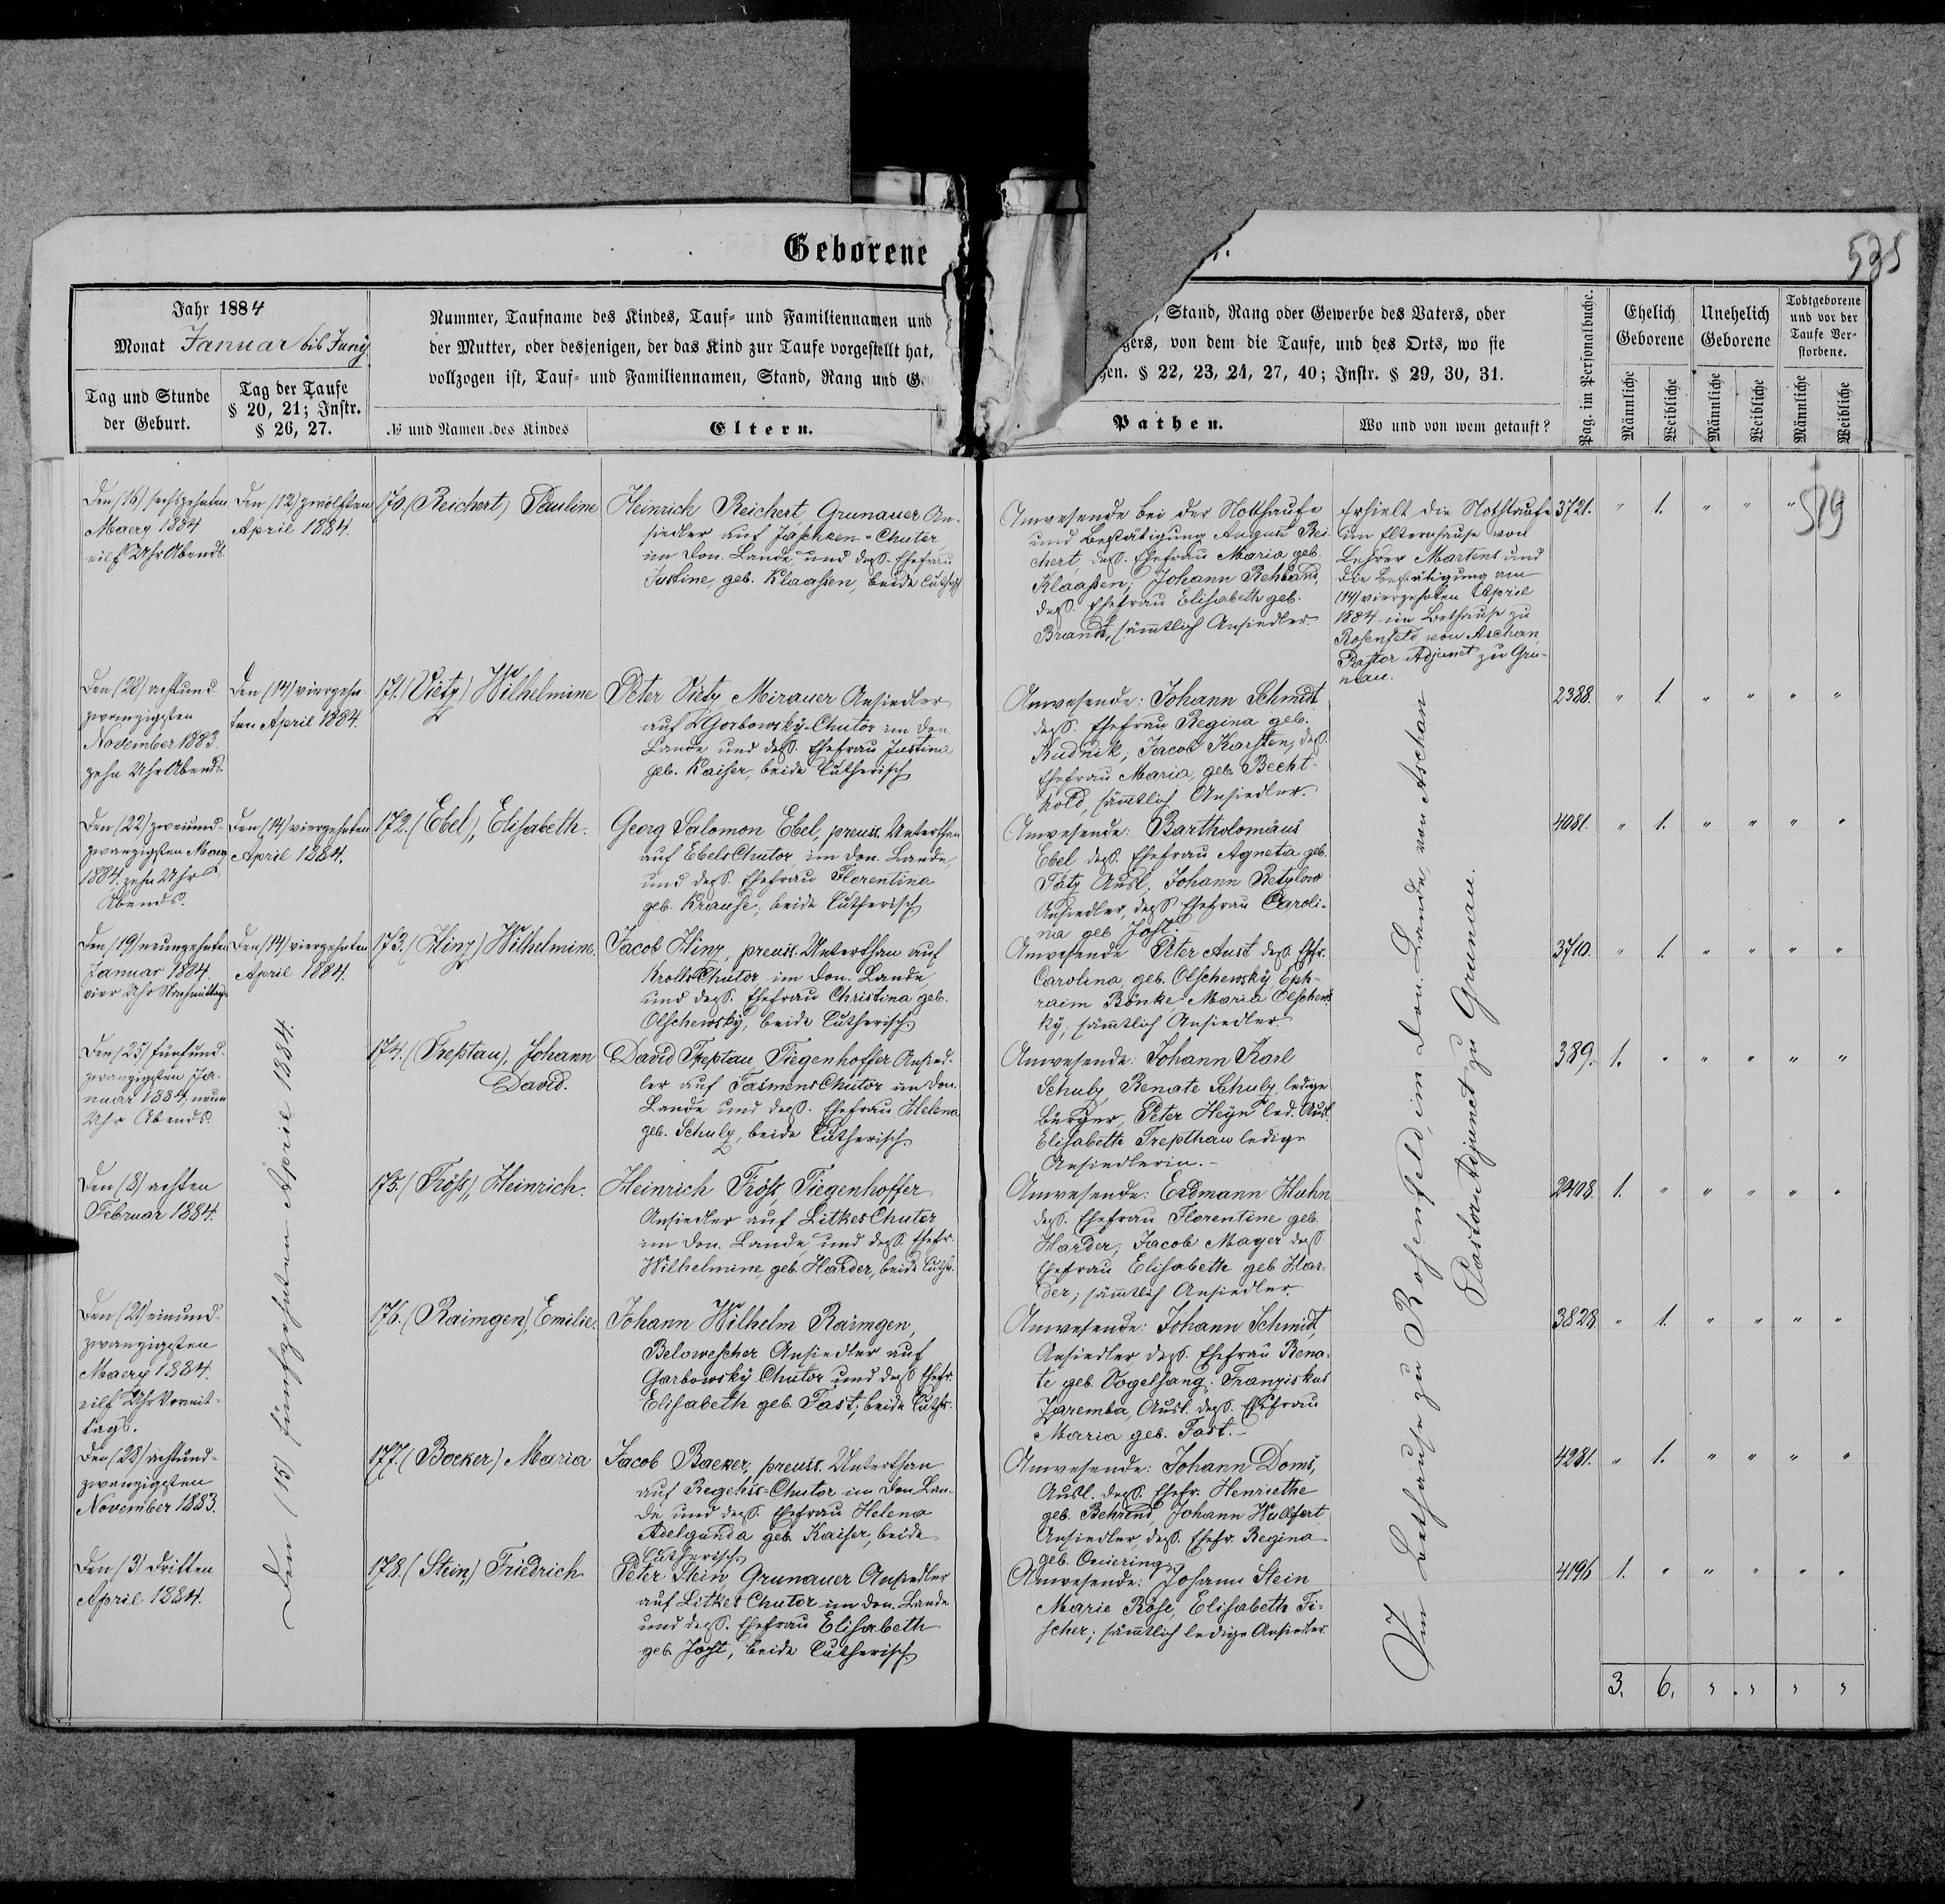 Geborene
535
Jahr 1884
Monat Januar bis Juny
Tag und Stunde
der Geburt.
Tag der Taufe
§ 20, 21; Instr.
§ 26, 27.
Nummer, Taufname des Kindes, Tauf- und Familiennamen und
der Mutter, oder desjenigen, der das Kind zur Taufe vorgestellt hat,
vollzogen ist, Tauf- und Familiennamen, Stand, Rang und
№ und Namen des Kindes
Eltern.
Stand, Rang oder Gewerbe des Vaters, oder
von dem die Taufe, und des Orts, wo sie
§ 22, 23, 24, 27, 40; Instr. § 29, 30, 31.
Pathen.
Wo und von wem getauft?
Pag. im Personalbuche.
Ehelich
Geborene
Unehelich
Geborene
Todtgeborene
und vor der
Taufe Ver-
storbene.
Männliche
Weibliche
Männliche
Weibliche
Männliche
Weibliche
519
Den (16) sechszehnten
Maerz 1884
eilf Uhr Abends
Den (12) zwölften
April 1884.
170. (Reichert) Pauline
Heinrich Reichert Grunauer An-
siedler auf Jaschken-Chutor
im Don. Lande und dess. Ehefrau
Justine, geb. Klaassen, beide luthsch
Anwesende bei der Nothtaufe
und Bestätigung August Rei
chert, dess. Ehefrau Maria geb.
Klaassen; Johann Rehband,
dess. Ehefrau Elisabeth geb.
Brandt, sämmtlich Ansiedler.
Erhielt die Nothtaufe
im Elternhause von
Lehrer Martens und
die Bestätigung am
(14) vierzehnten April
1884 im Bethause zu
Rosenfeld von Aschan
Pastor-Adjunct zu Gru-
nau.
3721. " 1. " " "
Den (28) achtund
zwanzigsten
November 1883.
zehn Uhr Abends.
Den (14) vierzehn
ten April 1884.
171. (Vietz) Wilhelmine
Peter Vietz Mirauer Ansiedler
auf Gorbowsky-Chutor im Don.
Lande und dess. Ehefrau Justina
geb. Kaiser, beide lutherisch
Anwesende: Johann Schmidt
dess. Ehefrau Regina geb.
Rudnik; Jacob Karsten, dess.
Ehefrau Maria, geb. Becht-
hold, sämmtlich Ansiedler.
2388. " 1. " " " "
Den (22) zweiund-
zwanzigsten Maerz
1884. zehn Uhr
Abends.
Den (14) vierzehnten
April 1884.
172. (Ebel), Elisabeth.
Georg Salomon Ebel, preuss. Unterthan
auf Ebels Chutor im Don. Lande,
und dess. Ehefrau Florentina
geb. Krause, beide lutherisch
Anwesende: Bartholomäus
Ebel dess. Ehefrau Agneta geb.
Tätz Ausl. Johann Retzlow
Ansiedler, dess Ehefrau Caroli-
na geb. Jost.-
4081. " 1. " " " "
Den (19) neunzehnten
Januar 1884.
vier Uhr Nachmittags
Den (14) vierzehnten
April 1884.
173. (Hinz) Wilhelmine.
Jacob Hinz, preuss. Unterthan auf
Krolls Chutor im Don. Lande
und dess. Ehefrau Christina geb.
Olschewsky, beide lutherisch
Anwesende Peter Aust dess. Ehfr.
Carolina, geb. Olschewsky, Eph-
raim Bönke, Maria Olschews
ky, sämmtlich Ansiedler.
3710. " 1. " " " "
Den (25) fünfund-
zwanzigsten Ja-
nuar 1884, neun
Uhr Abends.
174. (Treptau), Johann
David.
David Treptau Tiegenhoffer Ansied-
ler auf Tasmens Chutor im Don.
Lande und dess. Ehefrau Helena
geb. Schulz, beide lutherisch
Anwesende: Johann Karl
Schulz, Renate Schulz, ledige
Bürger, Peter Heyn led. Ausl.
Elisabeth Trepthau ledige
Ansiedlerin.-
389. 1. " " " " "
Den (8) achten
Februar 1884.
175. (Fröss), Heinrich.
Heinrich Fröss Tiegenhoffer
Ansiedler auf Litkes Chutor
im Don. Lande und dess. Ehefr.
Wilhelmine, geb. Harder, beide luthr.
Anwesende: Erdmann Huhn
dess. Ehefrau Florentine geb.
Harder, Jacob Mayer dess
Ehefrau Elisabeth geb. Har-
der; sämmtlich Ansiedler.
2408. 1. " " " " "
Den (21) einund-
zwanzigsten
Maerz 1884.
eilf Uhr Vormit-
tags.
176. (Raimgen), Emilie.
Johann Wilhelm Raimgen,
Belowescher Ansiedler auf
Garbowsky Chutor und dess Ehefr.
Elisabeth geb. Fast, beide luthr.
Anwesende: Johann Schmidt,
Ansiedler dess. Ehefrau Rena-
te geb. Vogelsang; Franziskus
Zaremba, Ausl. dess. Ehefrau
Maria geb. Fast.-
3828 " 1. " " " "
Den (28) achtund-
zwanzigsten
November 1883.
177. (Boeker) Maria
Jacob Baeker, preuss. Unterthan
auf Regehrs-Chutor im Don Lan-
de und dess. Ehefrau Helena
Adelgunda geb. Kaiser, beide
lutherisch
Anwesende: Johann Doms,
Ausl. dess. Ehefr. Henriethe
geb. Behrend, Johann Wullfert
Ansiedler, dess. Ehefr. Regina
geb. Quiering.
4281. " 1. " " " "
Den (3) dritten
April 1884.
178. (Stein) Friedrich
Peter Stein, Grunauer Ansiedler
auf Litkes Chutor im Don. Lande
und dess. Ehefrau Elisabeth
geb. Jost, beide lutherisch
Anwesende: Johann Stein
Marie Röse, Elisabeth Fi-
scher; sämmtlich ledige Ansiedler.
4196 1. " " " " "
Den (15) fünfzehnten April 1884.
Im Bethause zu Rosenfeld, im Don. Lande, von Aschan
Pastor-Adjunct zu Grunau.
3. 6. " " " "